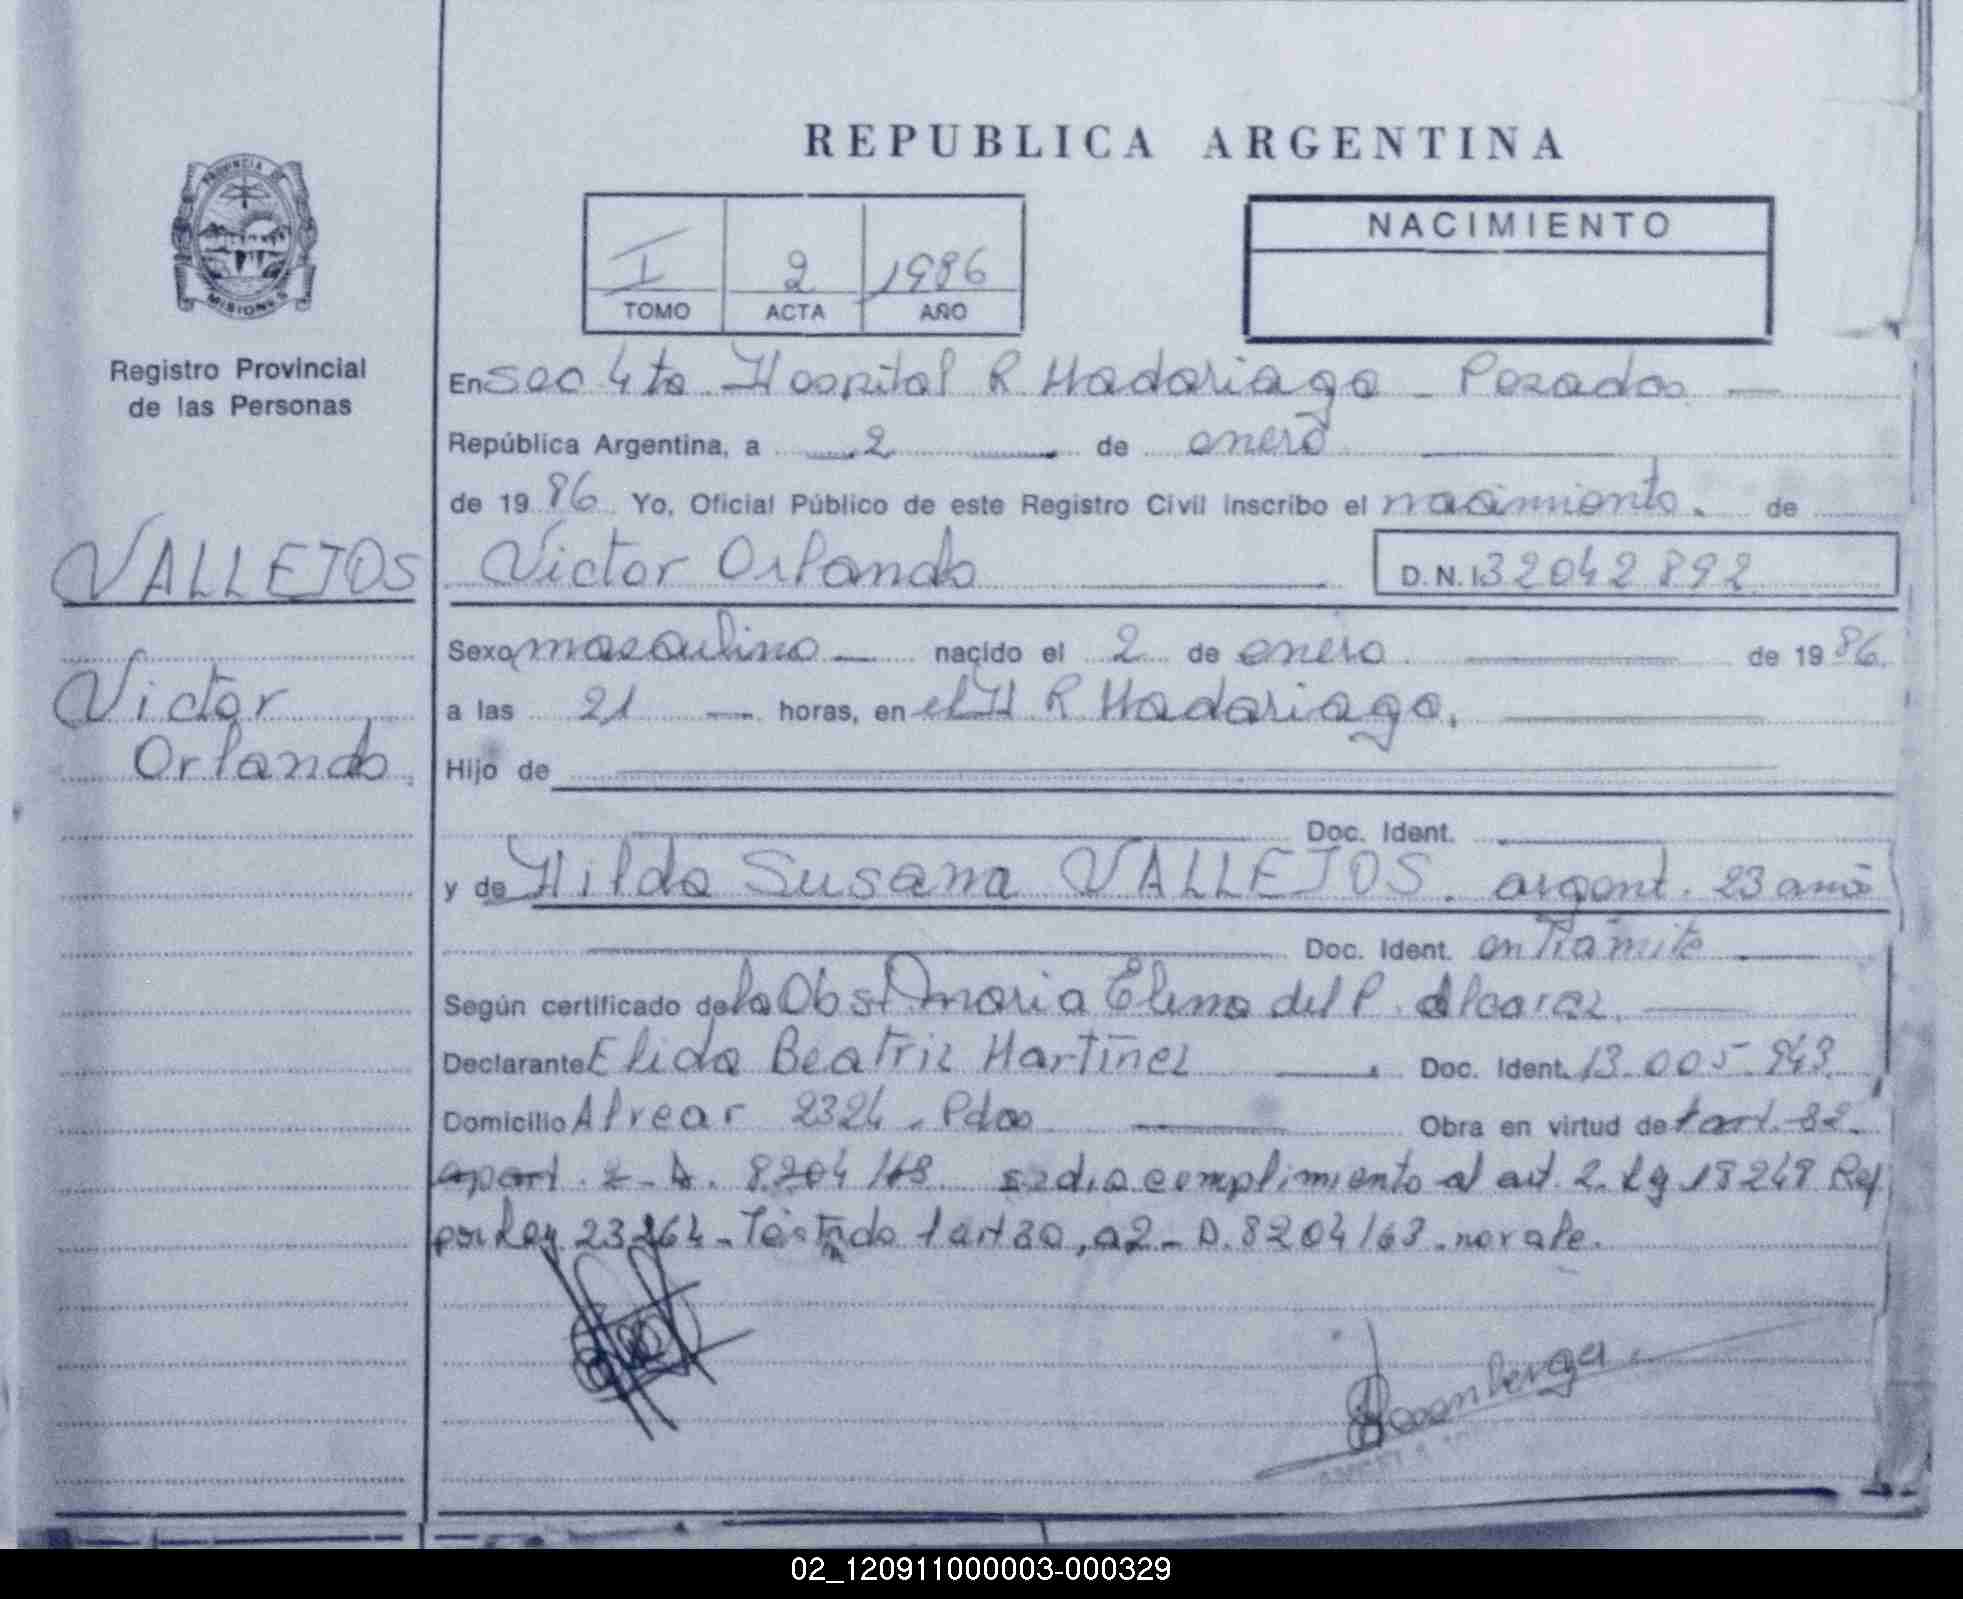 REPUBLICA ARGENTINA
PROVINCIA DE
MISIONES
Registro Provincial
de las Personas
I 2 1986
TOMO ACTA AÑO
NACIMIENTO
En secc 4ta Hospital R Madariaga - Posadas
República Argentina, a 2 de enero
de 19 86 Yo, Oficial Público de este Registro Civil inscribo el nacimiento. de
VALLEJOS
Victor Orlando D.N.I. 32042892
Victor
Orlando
Sexo masculino nacido el 2 de enero de 19 86.
a las 21 horas, en el H R Madariaga.
Hijo de
Doc. Ident.
y de Hilda Susana VALLEJOS. argent. 23 años
Doc. Ident. en Trámite
Según certificado de la Obst. Maria Elena del P. Alcaraz.
Declarante Elida Beatriz Martinez Doc. Ident. 13.005.943.
Domicilio Alvear 2324. Pdas Obra en virtud de art. 32.
apart. 2 - D. 8.204/63 se dio cumplimiento al art. 2. Ley 18248 Ref
por Ley 23264 - Testado art 30, a2 - D. 8204/63. no vale.
02_120911000003-000329